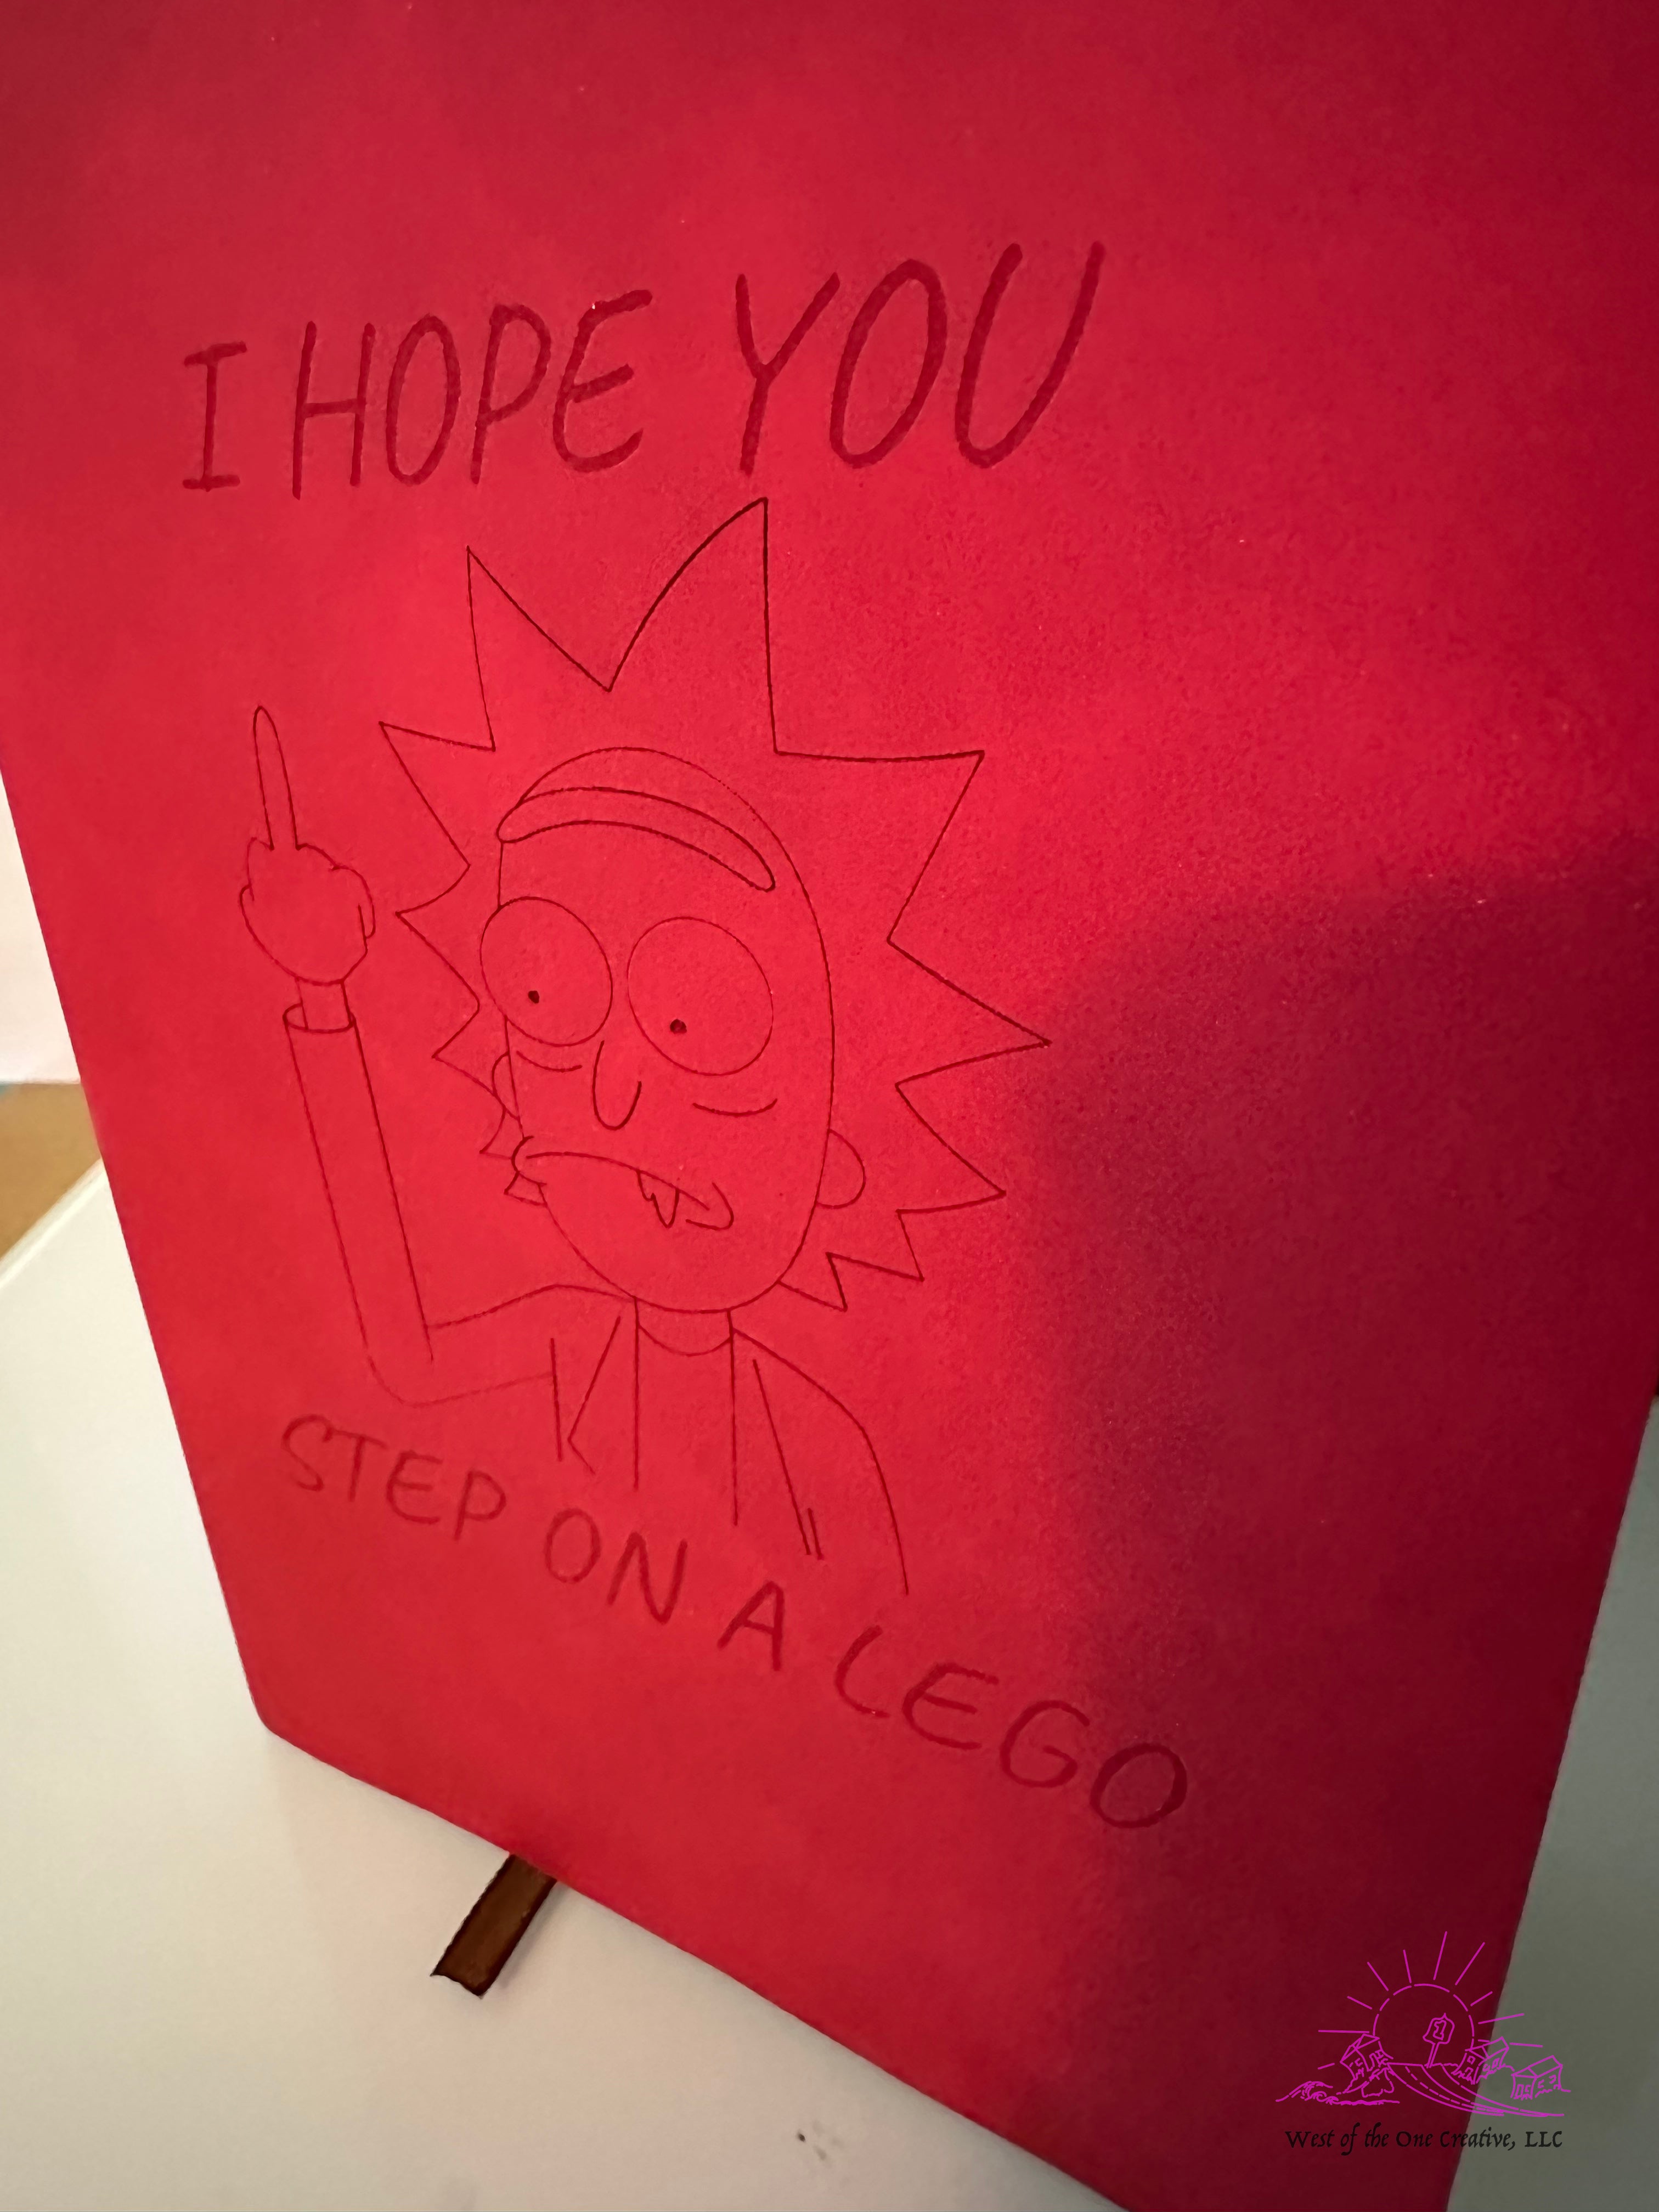 I HOPE YOU
STEP ON A LEGO
1
West of the One Creative, LLC